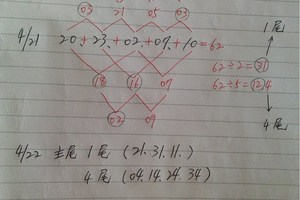 03 21 05 03
1尾
4/21 20.+23.+02.+07.+10=62
62÷2=31
18 16 07
62÷5=12.4
02 09
4尾
4/22 主尾 1尾 (21.31.11.)
4尾 (04.14.24.34)